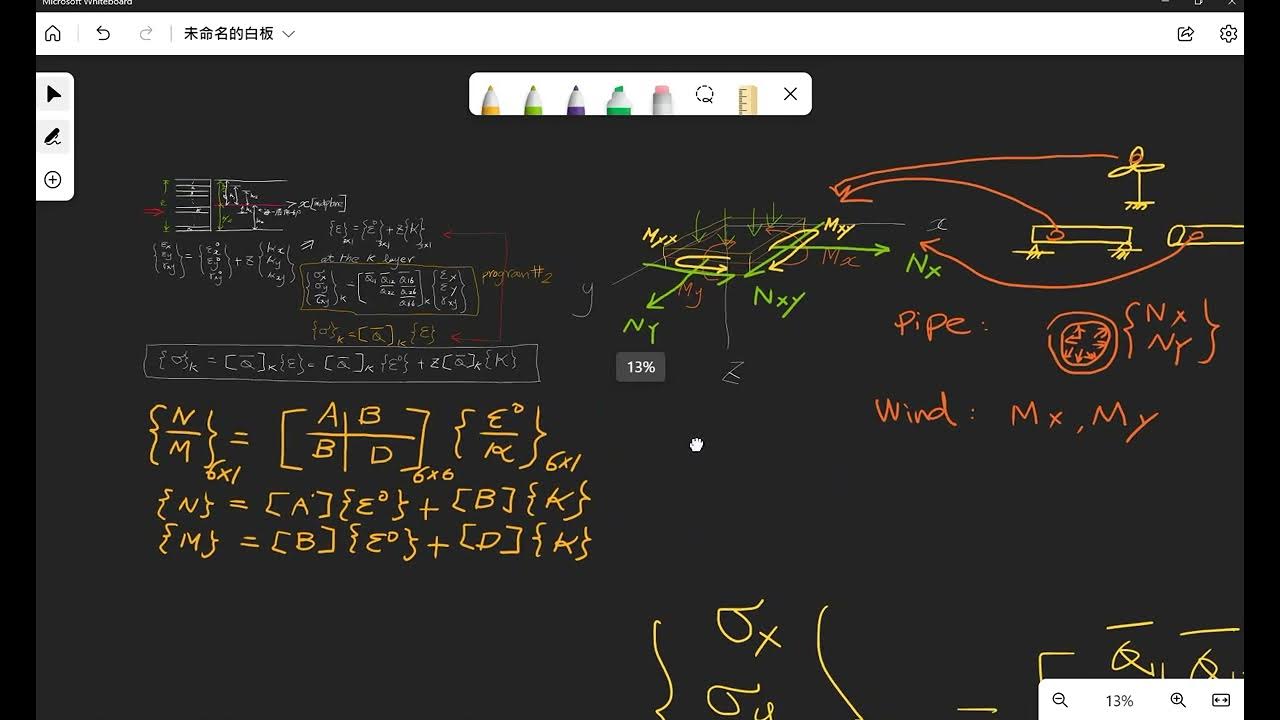 Microsoft Whiteboard
未命名的白板
x [midplane]
{ε} = {ε⁰} + z{K}
3x1 3x1 3x1
{εx εy γxy} = {εx⁰ εy⁰ γxy⁰} + z {Kx Ky Kxy}
at the K layer
{σx σy τxy}K = [Q̄11 Q̄12 Q̄16 Q̄22 Q̄26 Q̄66]K {εx εy γxy}
program#2
{σ}K = [Q̄]K {ε}
{σ}K = [Q̄]K{ε} = [Q̄]K {ε⁰} + z[Q̄]K{K}
{N/M}6x1 = [A B B D]6x6 {ε⁰/K}6x1
{N} = [A]{ε⁰} + [B]{K}
{M} = [B]{ε⁰} + [D]{K}
Myx
Mxy
x
Mx
Nx
y
My
Nxy
Ny
z
Pipe: {Nx Ny}
Wind: Mx, My
13%
{σx
σy
= [Q̄11 Q̄1
13%